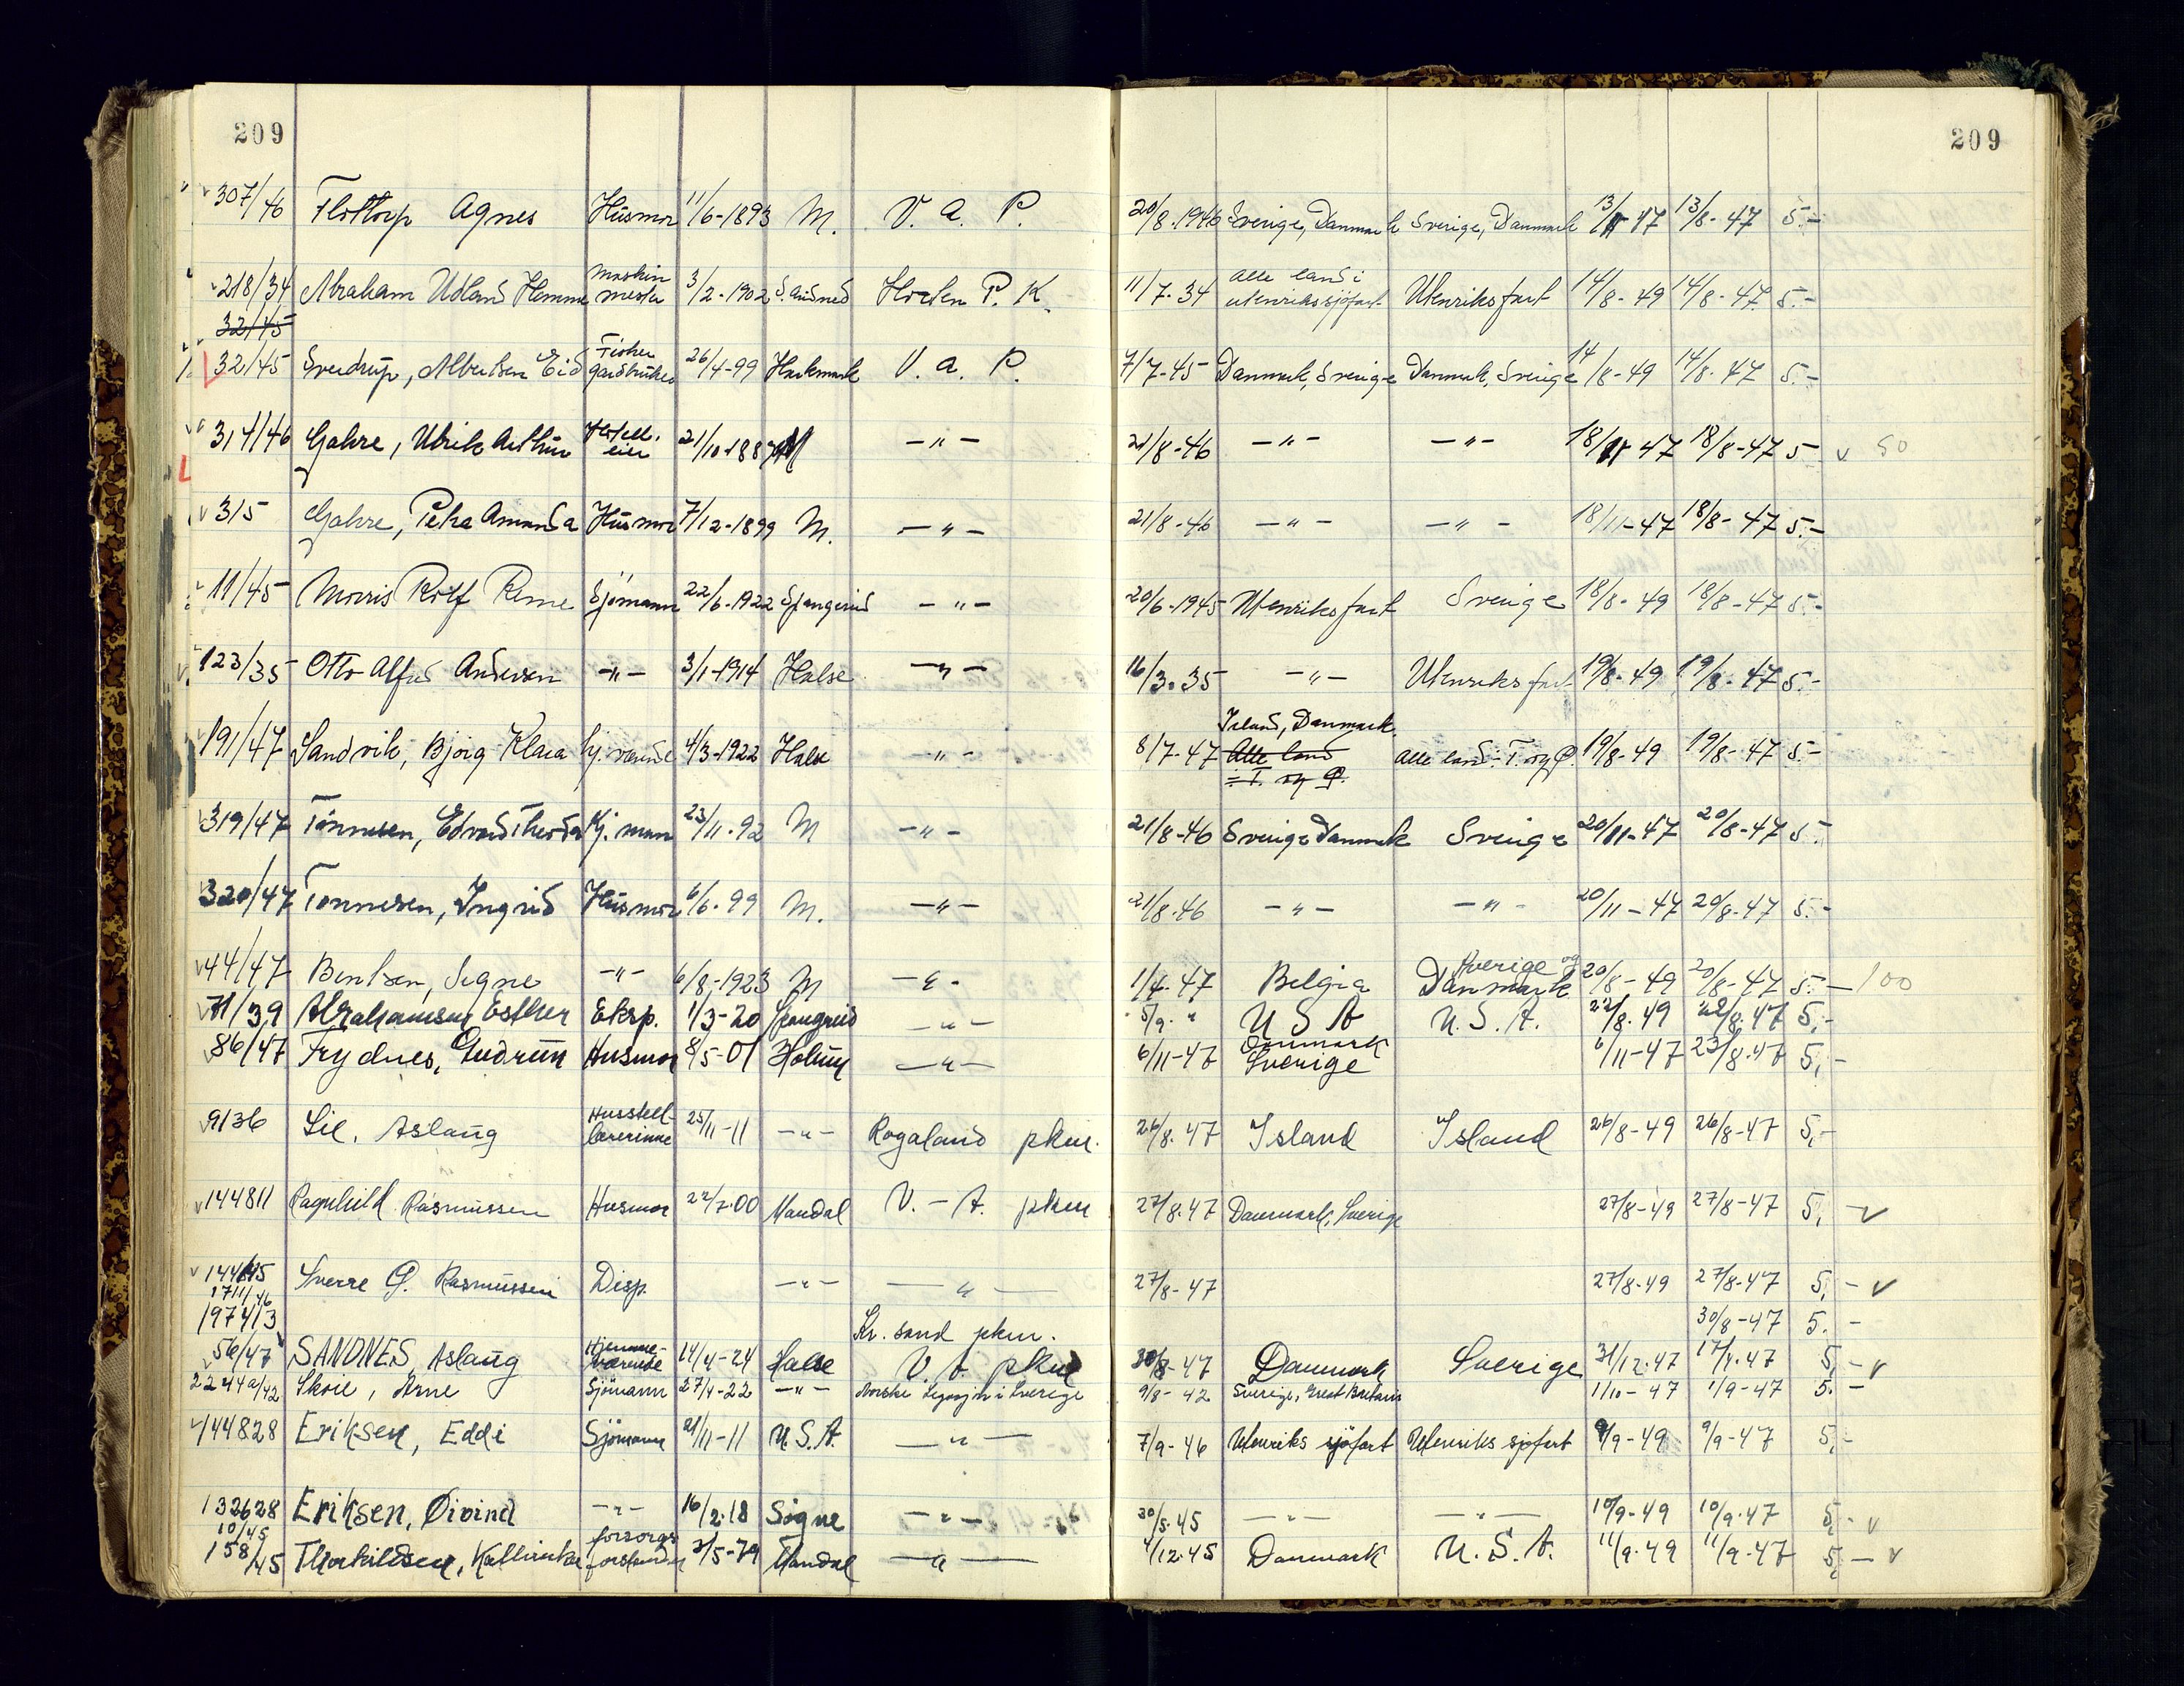 209 209
307/46 Flottorp Agnes Husmor 11/6-1893 M. V. A. P. 20/8.1946 Sverige, Danmark Sverige, Danmark 13/11 47 13/8-47 5.-
218/34 Abraham Udland Homme maskin mester 3/2-1902 S. Audned Horten P. K. 11/7.34 alle land i utenrikssjöfart Utenriksfart 14/8-49 14/8-47. 5.-
32/45
32/45 Sverdrup, Albertsen Eid Fisker gardbruker 26/4-99 Harkmark V. A. P. 7/7-45 Danmark, Sverige Danmark, Sverige 14/8-49 14/8-47 5.-
314/46 Gahre, Ulrik Arthur Hotell. eier 21/10-1887 M -"- 21/8-46 -"- -"- 18/11 47 18/8-47 5 v 50
315 Gahre, Petra Amanda Husmor 7/12-1899 M. -"- 21/8-46 -"- -"- 18/11-47 18/8-47 5.-
11/45 Morris Rolf Reme Sjömann 22/6-1922 Spangereid -"- 20/6-1945 Utenriksfart Sverige 18/8-49 18/8-47 5.-
123/35 Otto Alfred Andersen -"- 3/1-1914 Halse -"- 16/3.35 -"- Utenriksfart 19/8-49 19/8-47 5.-
Island, Danmark
191/47 Sandvik, Bjørg Klara hj. værende 4/3-1922 Halse -"- 8/7-47 Alle land Alle land ÷ T. og P. 19/8-49 19/8-47 5.-
÷ T. og P.
319/47 Tönnesen, Edvard Theodor Kj. mann 23/11-92 M -"- 21/8-46 Sverige Danmark Sverige 20/11-47 20/8-47 5.-
320/47 Tönnesen, Ingrid Husmor 6/6-99 M. -"- 21/8-46 -"- -"- 20/11-47 20/8-47 5.-
44/47 Bentsen, Signe -"- 6/8-1923 M -"- 1/4-47 Belgia Sverige og Danmark 20/8-49 20/8-47 5.- 100
71/39 Abrahamsen Esther Eksp. 1/3-20 Spangreid -"- 5/9 " U S A U. S. A. 22/8.49 22/8.47 5,-
86/47 Frydnes, Gudrun Husmor 8/5-01 Holum -"- 6/11-47 Danmark Sverige 6/11-47 23/8-47 5,-
9136 Lie, Aslaug Husstell-lærerinne 25/11-11 -"- Rogaland pkm. 26/8.47 Island Island 26/8-49 26/8-47 5,-
144811 Ragnhild Rasmussen Husmor 22/7.00 Mandal V.-A. pkm 27/8.47 Danmark, Sverige 27/8-49 27/8-47 5,- v
144145 Sverre G. Rasmussen Disp. -"- -"- 27/8-47 27/8-49 27/8-47 5,- v
1711/46
197413 Kr. sand pkm. 30/8-47 5.-
56/47 SANDNES, Aslaug Hjemme-værende 14/4-24 Halse V. A. pkm 30/8-47 Danmark Sverige 31/12.47 17/4.47 5,- v
2244a/42 Skoie, Arne Sjömann 27/4-22 -"- Norske Legasjon i Sverige 9/8-42 Sverige, Great Britain 1/10-47 1/9-47 5.-
144828 Eriksen, Eddi Sjömann 21/11-11 U. S. A. -"- 7/9-46 Utenriks sjöfart Utenriks sjøfart 9/9-49 9/9-47 5,-
132628 Eriksen, Øivind -"- 16/2.18 Søgne -"- 30/5.45 -"- -"- 10/9-49 10/9.47 5,- v
10/45
158/45 Thorkildsen, Kathinka forsorgs forstander 3/5-79 Mandal -"- 4/12.45 Danmark U. S. A. 11/9.49 11/9.47 5,- v